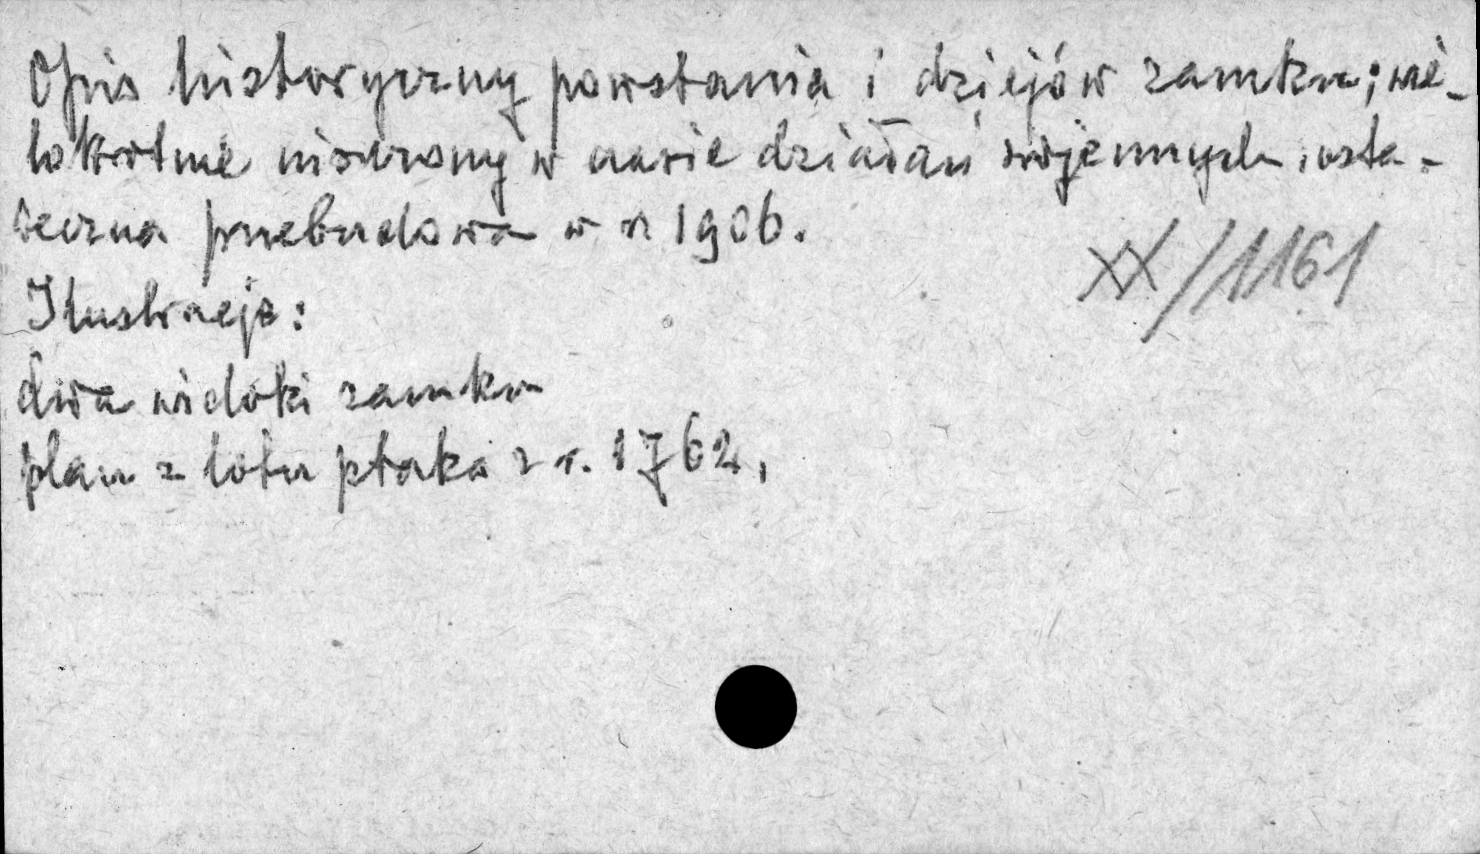 Opis historyczny powstania i dziejów zamku; wie-
lokrotnie niszczony w czasie działań wojennych, osta-
teczna przebudowa w r 1906.
XX/1161
Ilustracje:
dwa widoki zamku
plan z lotu ptaka z r. 1762,